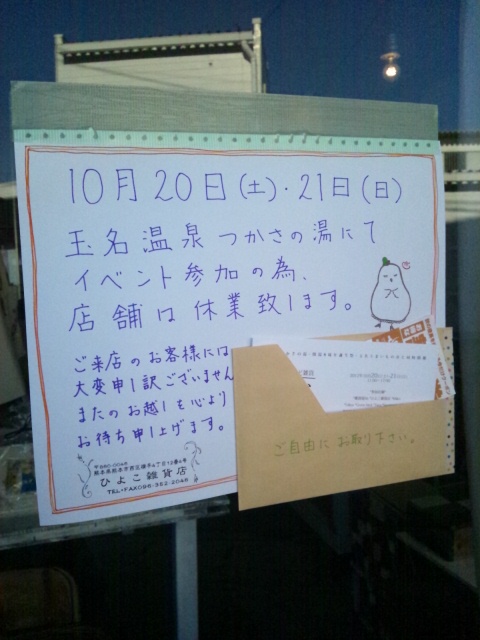 10月20日(土)・21日(日)
玉名温泉つかさの湯にて
イベント参加の為、
店舗は休業致します。
ご来店のお客様には
大変申し訳ございません
またのお越しを心より
お待ち申し上げます。
ひよこ雑貨店
TEL・FAX096-352-2046
ご自由にお取り下さい。